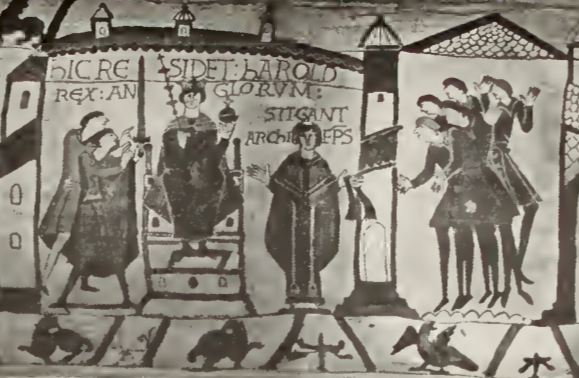 hIC RE SIDET: hAROLD
REX: AN GLORVM:
STIGANT
ARChIEPS